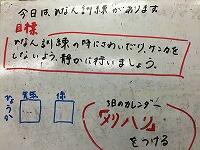 今日は、ひなん訓練があります。
目標
ひなん訓練の時にさわいだり、ケンカを
しないよう、静かに行いましょう。
ろうか
3日のカレンダー
「メリハリ」
をつける